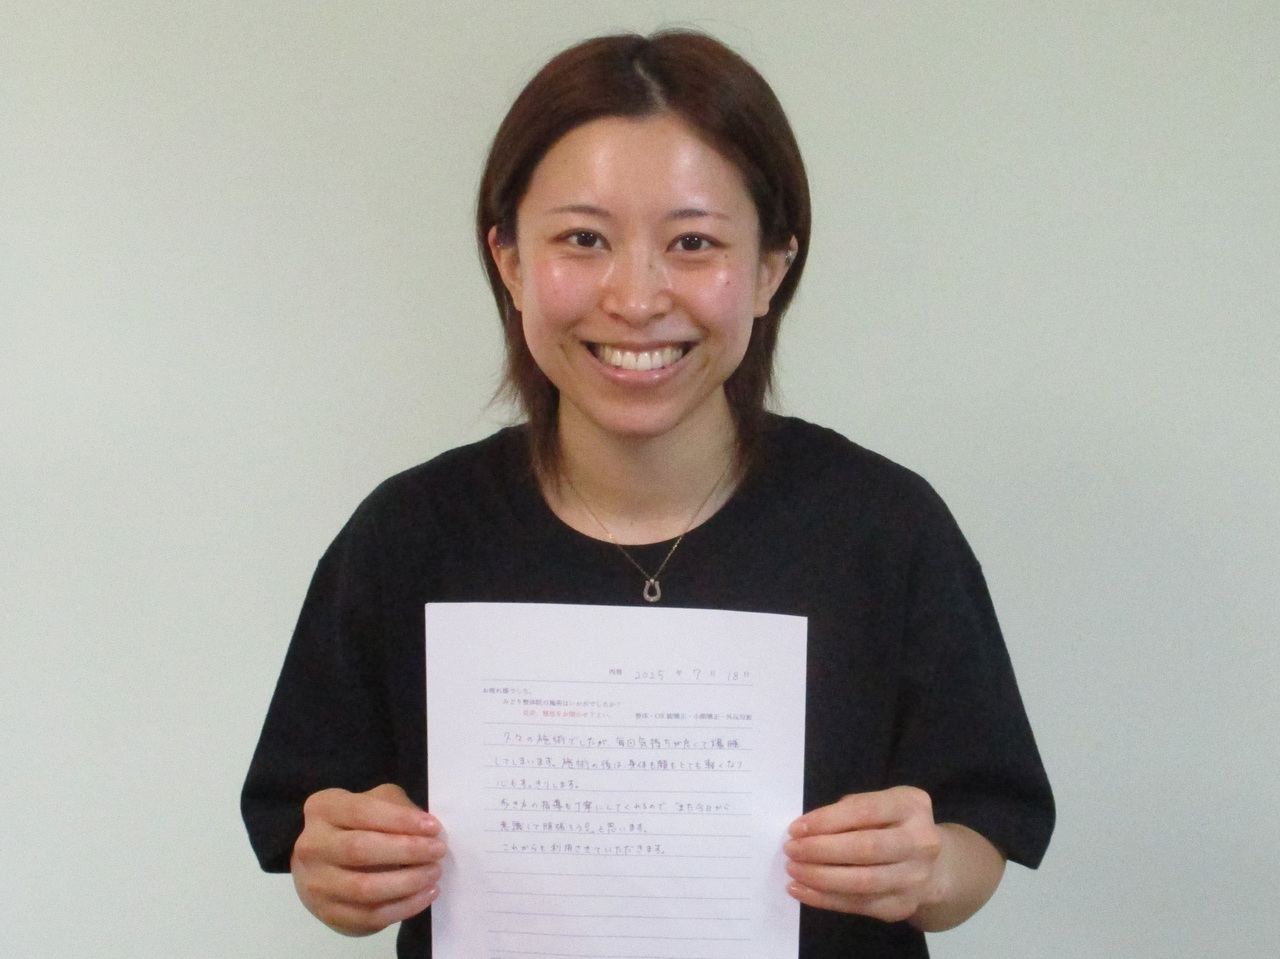 西暦 2025 年 7 月 18 日
お疲れ様でした。
みどり整体院の施術はいかがでしたか?
是非、感想をお聞かせ下さい。 整体・O脚矯正・小顔矯正・外反母趾
久々の施術でしたが、毎回気持ちが良くて爆睡
してしまいます。施術の後は身体も顔もとても軽くなり
心もすっきりします。
歩き方の指導も丁寧にしてくれるので、また今日から
意識して頑張ろう!と思います。
これからも利用させていただきます。